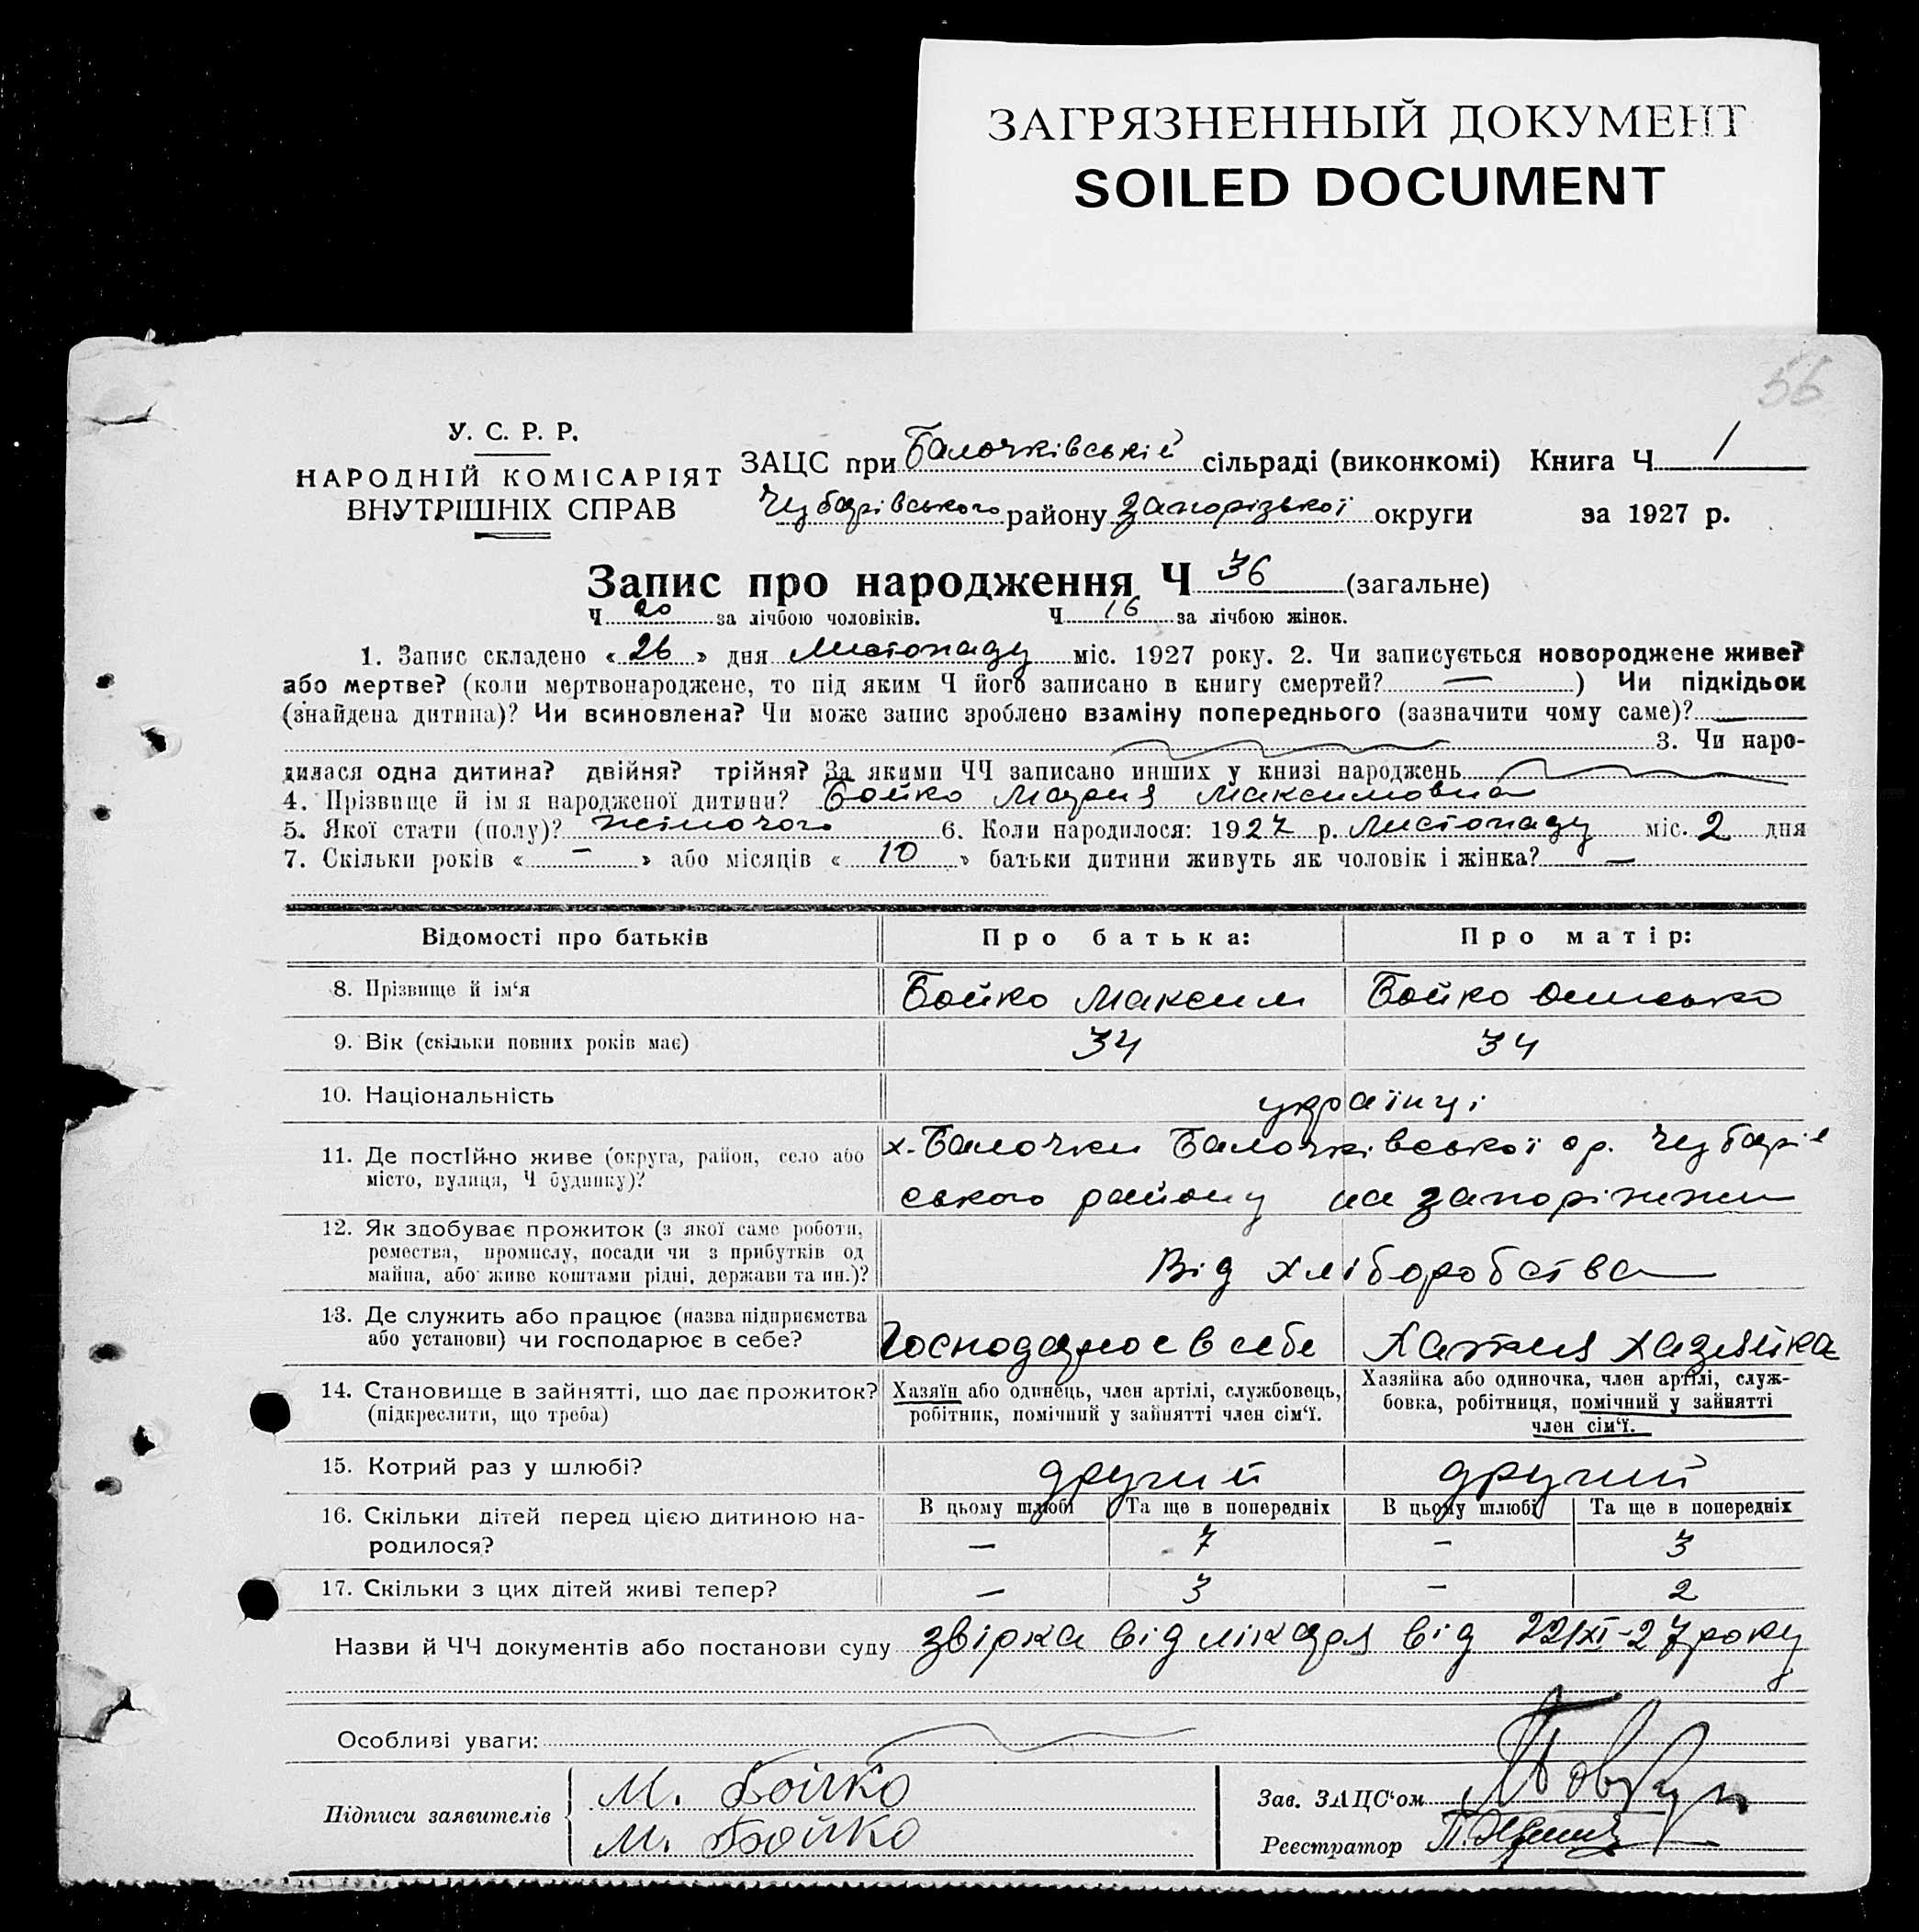 ЗАГРЯЗНЕННЫЙ ДОКУМЕНТ
SOILED DOCUMENT
56
У. С. Р. Р.
НАРОДНІЙ КОМІСАРІЯТ
ВНУТРІШНІХ СПРАВ
ЗАЦС при Балочківській сільраді (виконкомі) Книга Ч 1
Чубарівського району Запорізької округи за 1927 р.
Запис про народження Ч 36 (загальне)
Ч 20 за лічбою чоловіків. Ч 16 за лічбою жінок.
1. Запис складено « 26 » дня Листопаду міс. 1927 року. 2. Чи записується новороджене живе?
або мертве? (коли мертвонароджене, то під яким Ч його записано в книгу смертей? — ) Чи підкідьок
(знайдена дитина)? Чи всиновлена? Чи може запис зроблено взаміну попереднього (зазначити чому саме)? —
3. Чи наро-
дилася одна дитина? двійня? трійня? За якими ЧЧ записано инших у книзі народжень
4. Прізвище й ім я народженої дитини? Бойко Мария Максимовна
5. Якої стати (полу)? жіночого 6. Коли народилося: 1927 р. Листопаду міс. 2 дня
7. Скільки років « — » або місяців « 10 » батьки дитини живуть як чоловік і жінка? —
Відомості про батьків Про батька: Про матір:
8. Прізвище й ім'я Бойко Максим Бойко
9. Вік (скільки повних років має) 34 34
10. Національність українці
11. Де постійно живе (округа, район, село або х. Балочки Балочківської ср. Чубарів
місто, вулиця, Ч будинку)? ського району на Запоріжжи
12. Як здобуває прожиток (з якої саме роботи,
ремества, промислу, посади чи з прибутків од
майна, або живе коштами рідні, держави та ин.)? Від хліборобства
13. Де служить або працює (назва підприємства
або установи) чи господарює в себе? Господарює в себе Хатня хазяйка
14. Становище в зайнятті, що дає прожиток? Хазяїн або одинець, член артілі, службовець, Хазяйка або одиночка, член артілі, служ-
(підкреслити, що треба) робітник, помічний у зайнятті член сім'ї. бовка, робітниця, помічний у зайнятті
член сім'ї.
15. Котрий раз у шлюбі? другий другий
В цьому шлюбі Та ще в попередніх В цьому шлюбі Та ще в попередніх
16. Скільки дітей перед цією дитиною на-
родилося? — 7 — 3
17. Скільки з цих дітей живі тепер? — 3 — 2
Назви й ЧЧ документів або постанови суду звірка від лікаря від 22/XI-27 року
Особливі уваги:
Підписи заявителів М. Бойко
М. Бойко
Зав. ЗАЦС'ом
Реєстратор